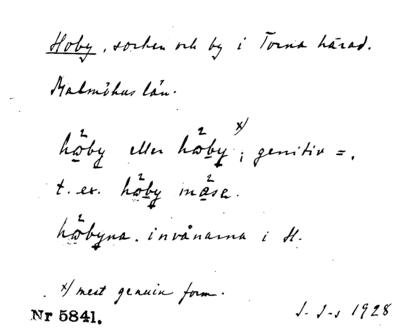 Hoby, socken och by i Torna härad.
Malmöhus län.
hω²by eller hω²by x); genitiv =.
t. ex. hω²by måsa.
hω²byna. invånarna i H.
x) mest genuin form.
Nr 5841. J. S-s 1928